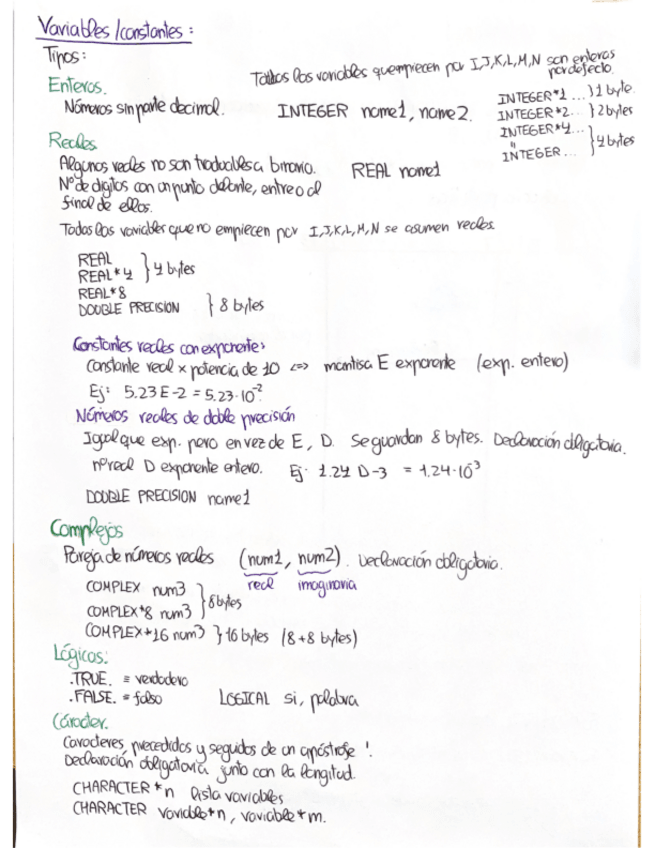 Variables/constantes:
Tipos:
Todas las variables que empiecen por I,J,K,L,M,N son enteras por defecto.
Enteros.
Números sin parte decimal. INTEGER name1, name2.
INTEGER*1 ... } 1 byte
INTEGER*2... } 2 bytes
INTEGER*4...
" } 4 bytes
INTEGER...
Reales
Algunos reales no son traducibles a binario. REAL name1
Nº de dígitos con un punto delante, entre o al
final de ellos.
Todas las variables que no empiecen por I,J,K,L,M,N se asumen reales.
REAL
REAL*4 } 4 bytes
REAL*8
DOUBLE PRECISION } 8 bytes
Constantes reales con exponente:
Constante real x potencia de 10 <=> mantisa E exponente (exp. entero)
Ej: 5.23 E-2 = 5.23·10^-2
Números reales de doble precisión
Igual que exp. pero en vez de E, D. Se guardan 8 bytes. Declaración obligatoria.
nº real D exponente entero. Ej: 1.24 D-3 = 1.24·10^-3
DOUBLE PRECISION name1
Complejos
Pareja de números reales (num1, num2). Declaración obligatoria.
real imaginaria
COMPLEX num3
COMPLEX*8 num3 } 8 bytes
COMPLEX*16 num3 } 16 bytes (8+8 bytes)
Lógicos:
.TRUE. = verdadero
.FALSE. = falso LOGICAL si, palabra
Carácter.
Caracteres precedidos y seguidos de un apóstrofe '.
Declaración obligatoria junto con la longitud.
CHARACTER *n lista variables
CHARACTER variable*n, variable*m.